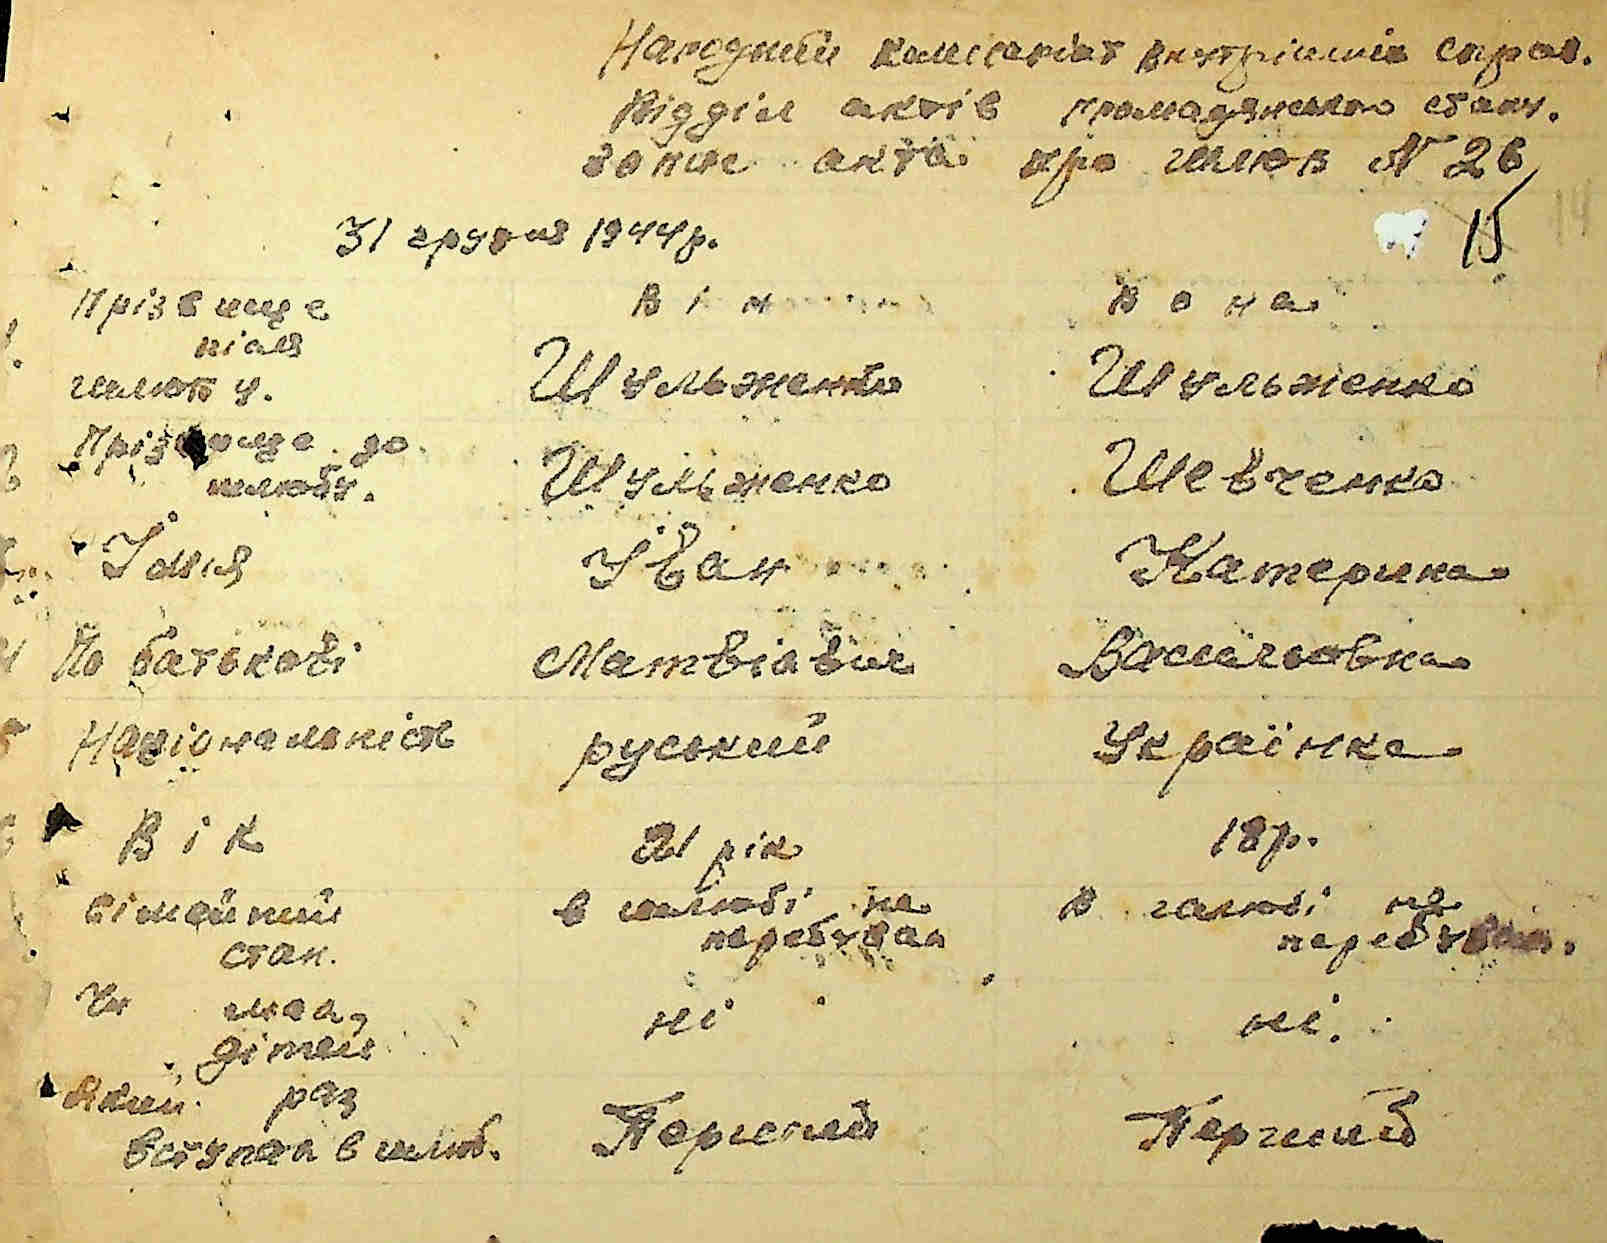 Народний комісаріат внутрішніх справ.
Відділ актів громадянського стану.
запис акта про шлюб N 26
15
14
31 грудня 1944 р.
Прізвище Він Вона
після
шлюбу. Шульженко Шульженко
Прізвище до
шлюбу. Шульженко Шевченко
Імия Іван Катерина
По батькові Матвіевич Василовна
Національність руський Українка
Вік 21 рік 18 р.
сімейний в шлюбі не в шлюбі не
стан. перебував перебував.
Чи має,
дітей ні ні.
Який раз
вступає в шлюб. Перший Перший